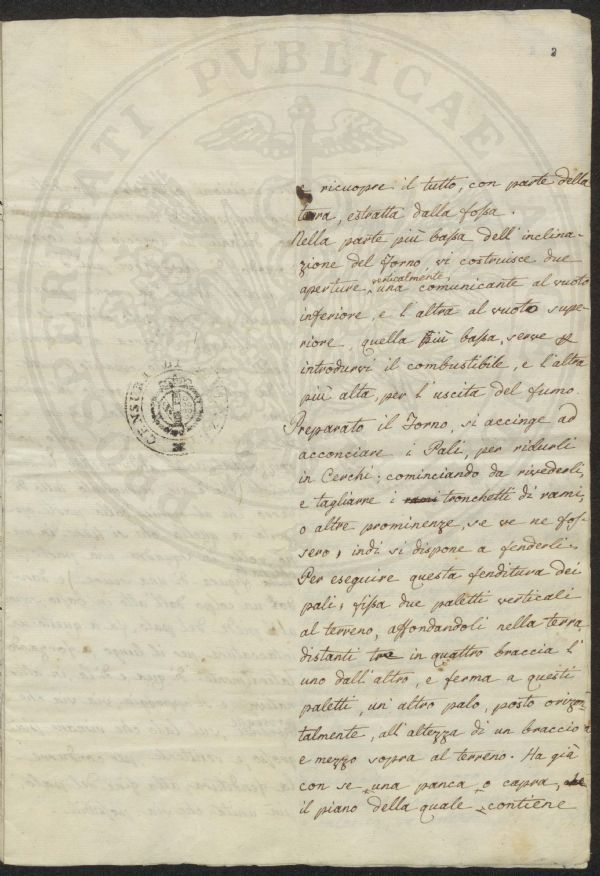 2
e ricuopre il tutto, con parte della
terra, estratta dalla fossa.
Nella parte più bassa dell'inclina-
zione del Forno vi costruisce due
verticalmente
aperture, una comunicante al vuoto
inferiore, e l'altra al vuoto supe-
riore, quella più bassa, serve p
introdurvi il combustibile, e l'altra
più alta, per l'uscita del fumo.
Preparato il Forno, si accinge ad
acconciare i Pali, per ridurli
in Cerchi; cominciando da rivederli,
e tagliarre i rami tronchetti di rami,
o altre prominenze, se ve ne fos-
sero, indi si dispone a fenderli.
Per eseguire questa fenditura dei
pali, fissa due paletti verticali
al terreno, affondandoli nella terra,
distanti tre in quattro braccia l'
uno dall'altro, e ferma a questi
paletti, un'altro palo, posto orizon-
talmente, all'altezza di un braccio
e mezzo sopra al terreno. Ha già
con se, una panca, o capra, che
il piano della quale, contiene
CENSURA DI
PUBLICAE